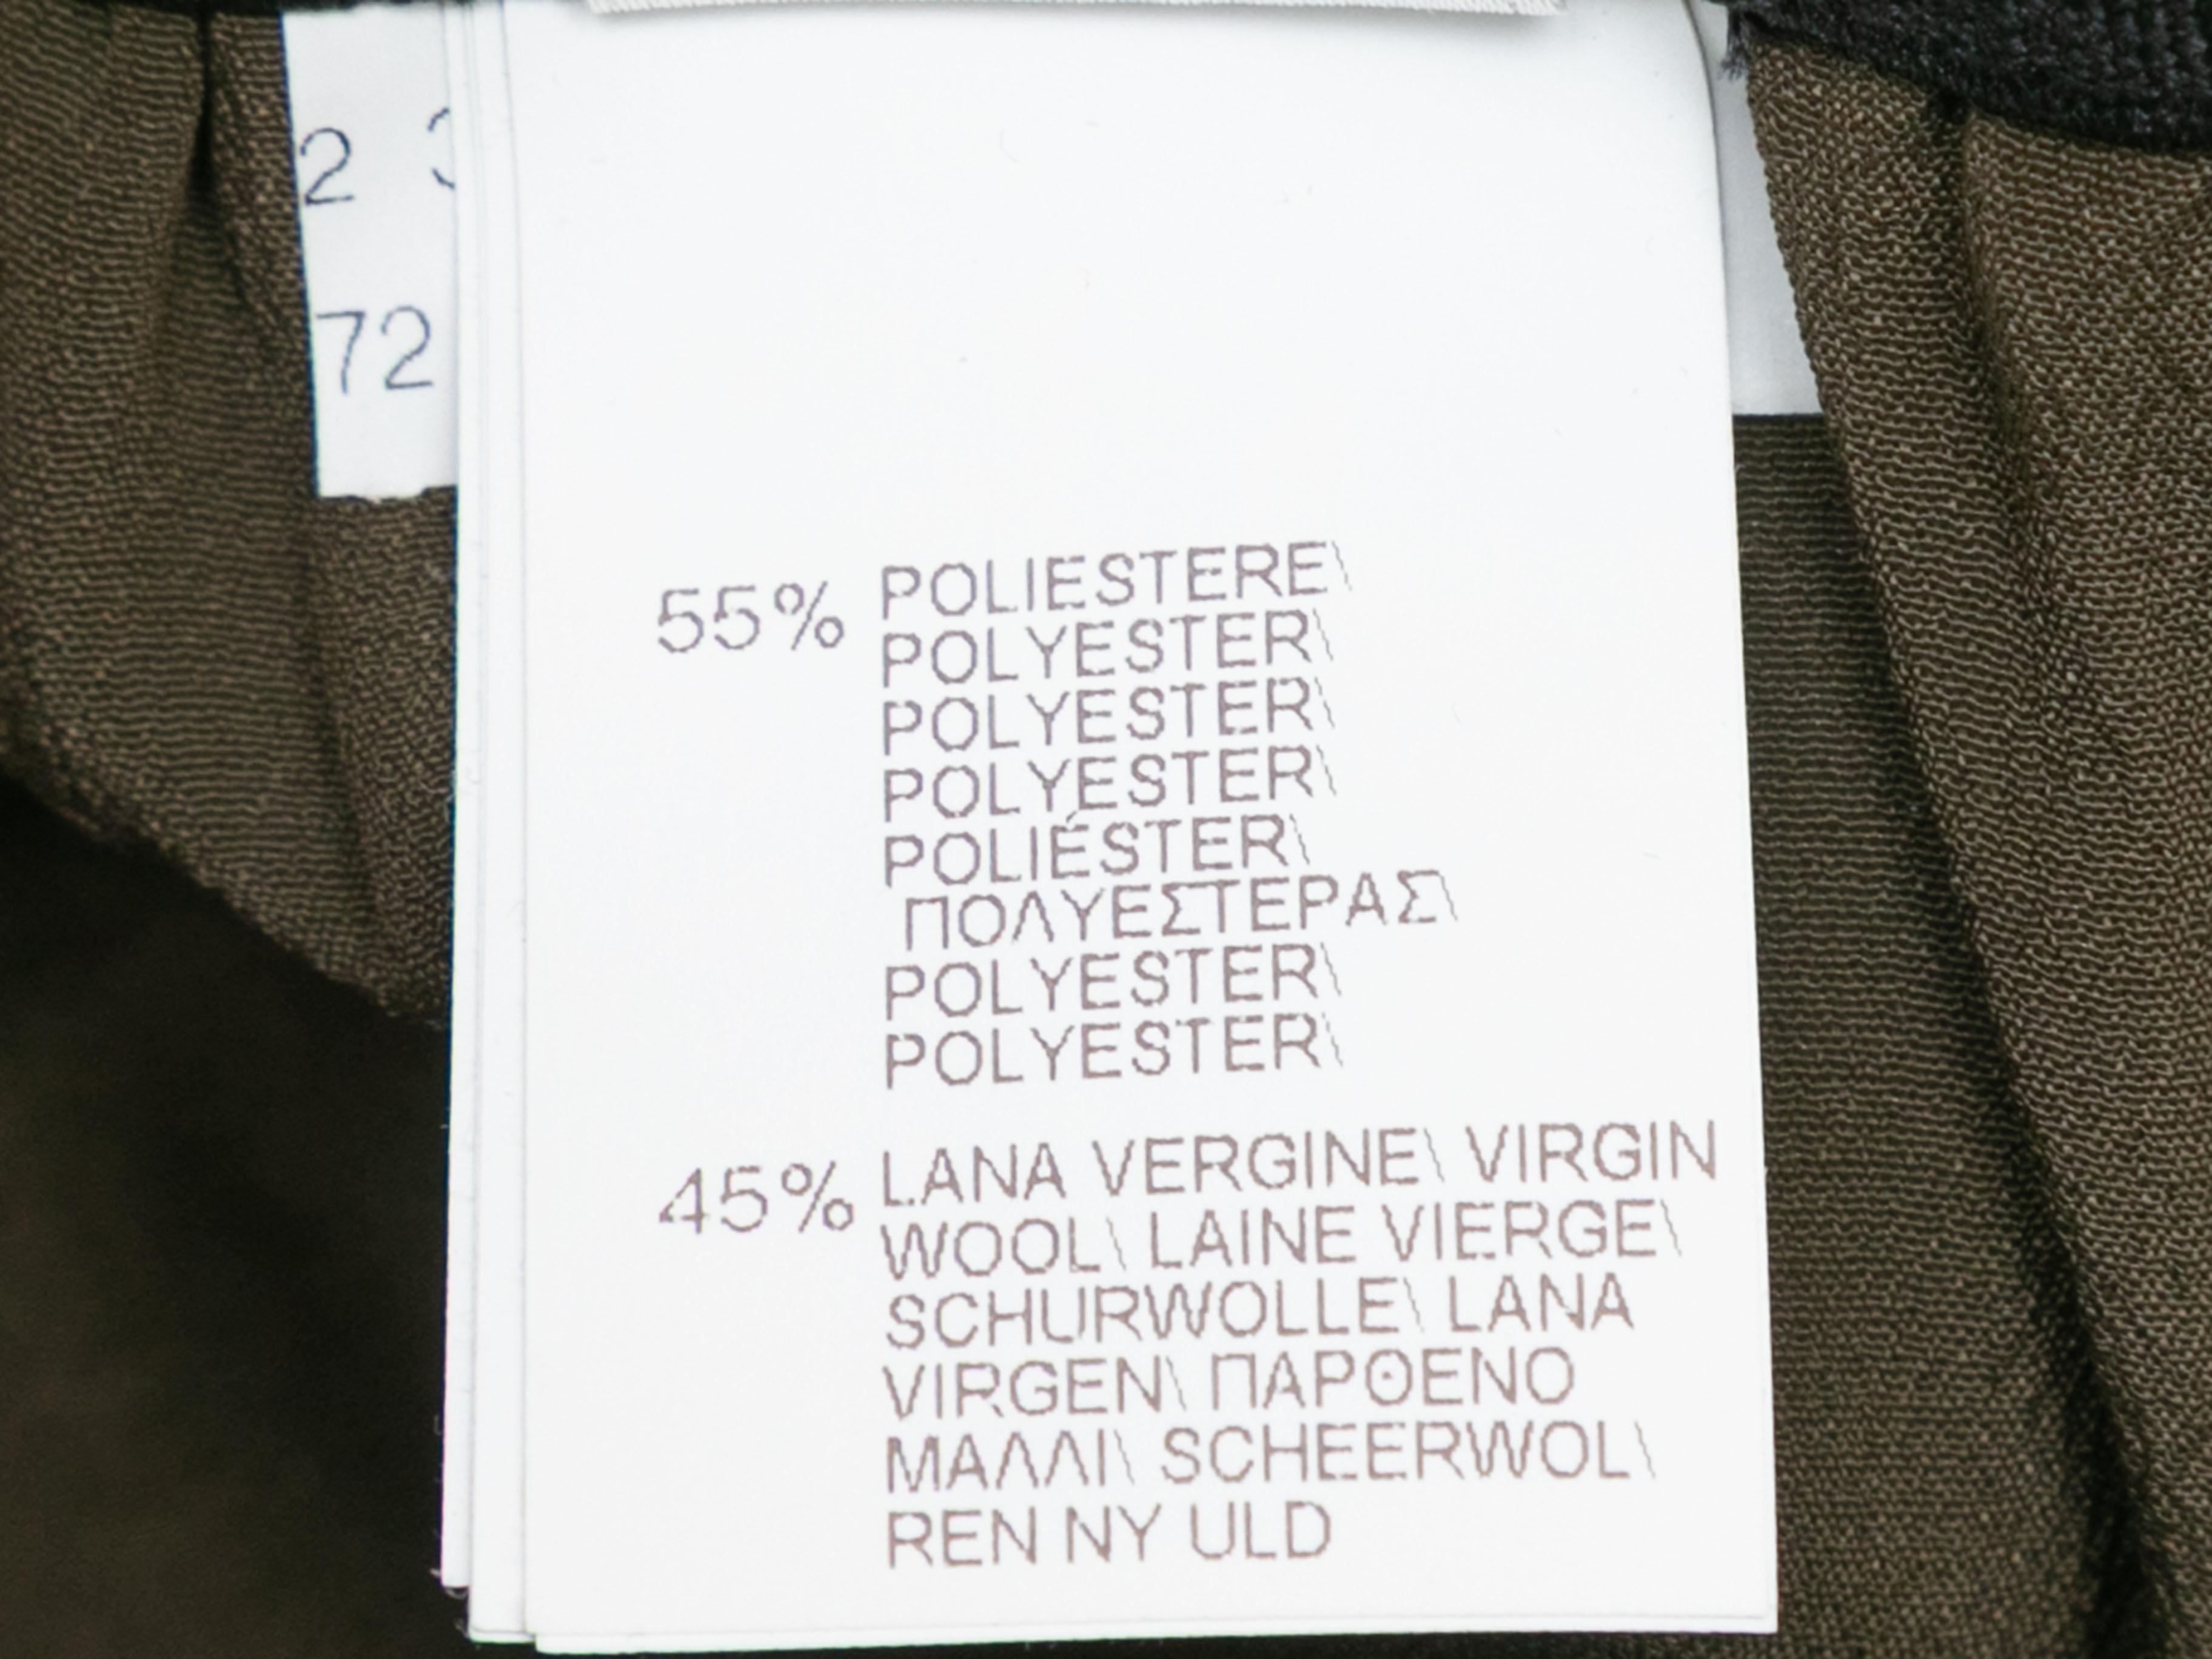 2
72
55% POLIESTERE\
POLYESTER\
POLYESTER\
POLYESTER\
POLIÉSTER\
ΠΟΛΥΕΣΤΕΡΑΣ\
POLYESTER\
POLYESTER\
45% LANA VERGINE\ VIRGIN
WOOL\ LAINE VIERGE\
SCHURWOLLE\ LANA
VIRGEN\ ΠΑΡΘΕΝΟ
ΜΑΛΛΙ\ SCHEERWOL\
REN NY ULD